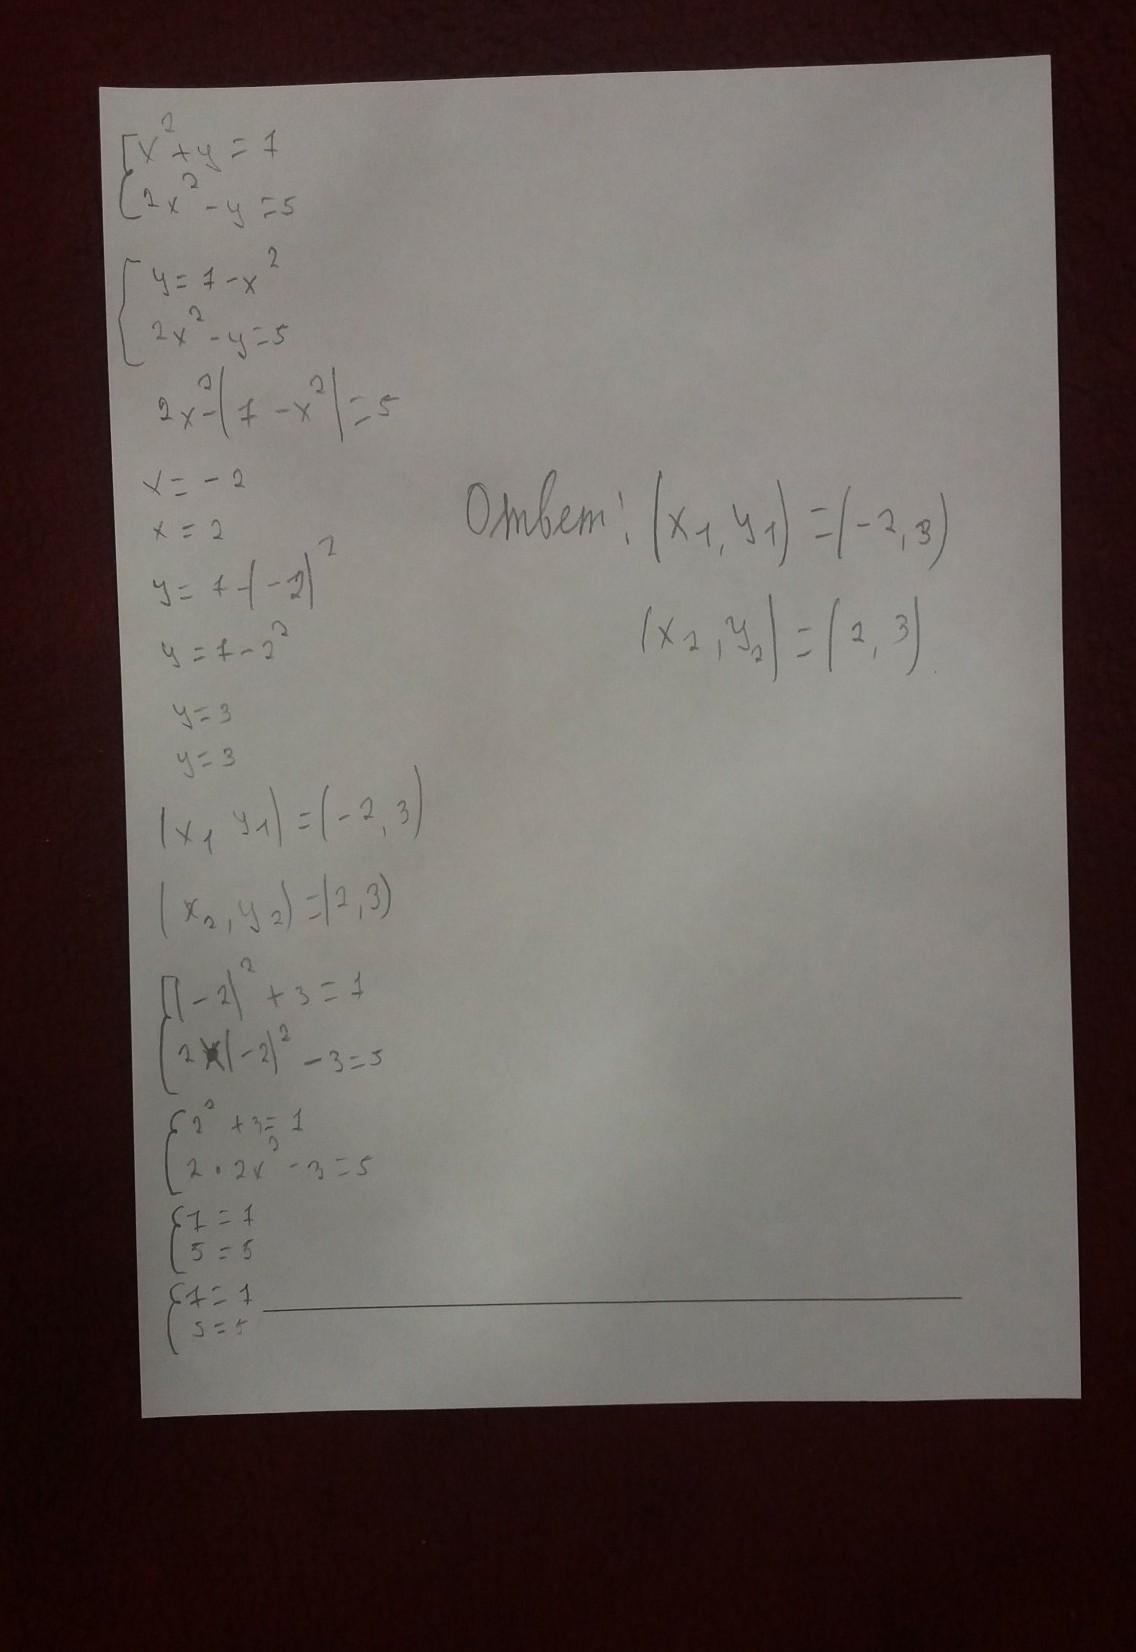 {x² + y = 7
2x² - y = 5
{y = 7 - x²
2x² - y = 5
2x² - (7 - x²) = 5
x = - 2
x = 2
y = 7 - (- 2)²
y = 7 - 2²
y = 3
y = 3
(x₁ y₁) = (- 2, 3)
(x₂, y₂) = (2, 3)
{(- 2)² + 3 = 7
2 (- 2)² - 3 = 5
{2² + 3 = 7
2 · 2x² - 3 = 5
{7 = 7
5 = 5
{7 = 7
5 = 5
Ответ: (x₁, y₁) = (- 2, 3)
(x₂, y₂) = (2, 3)